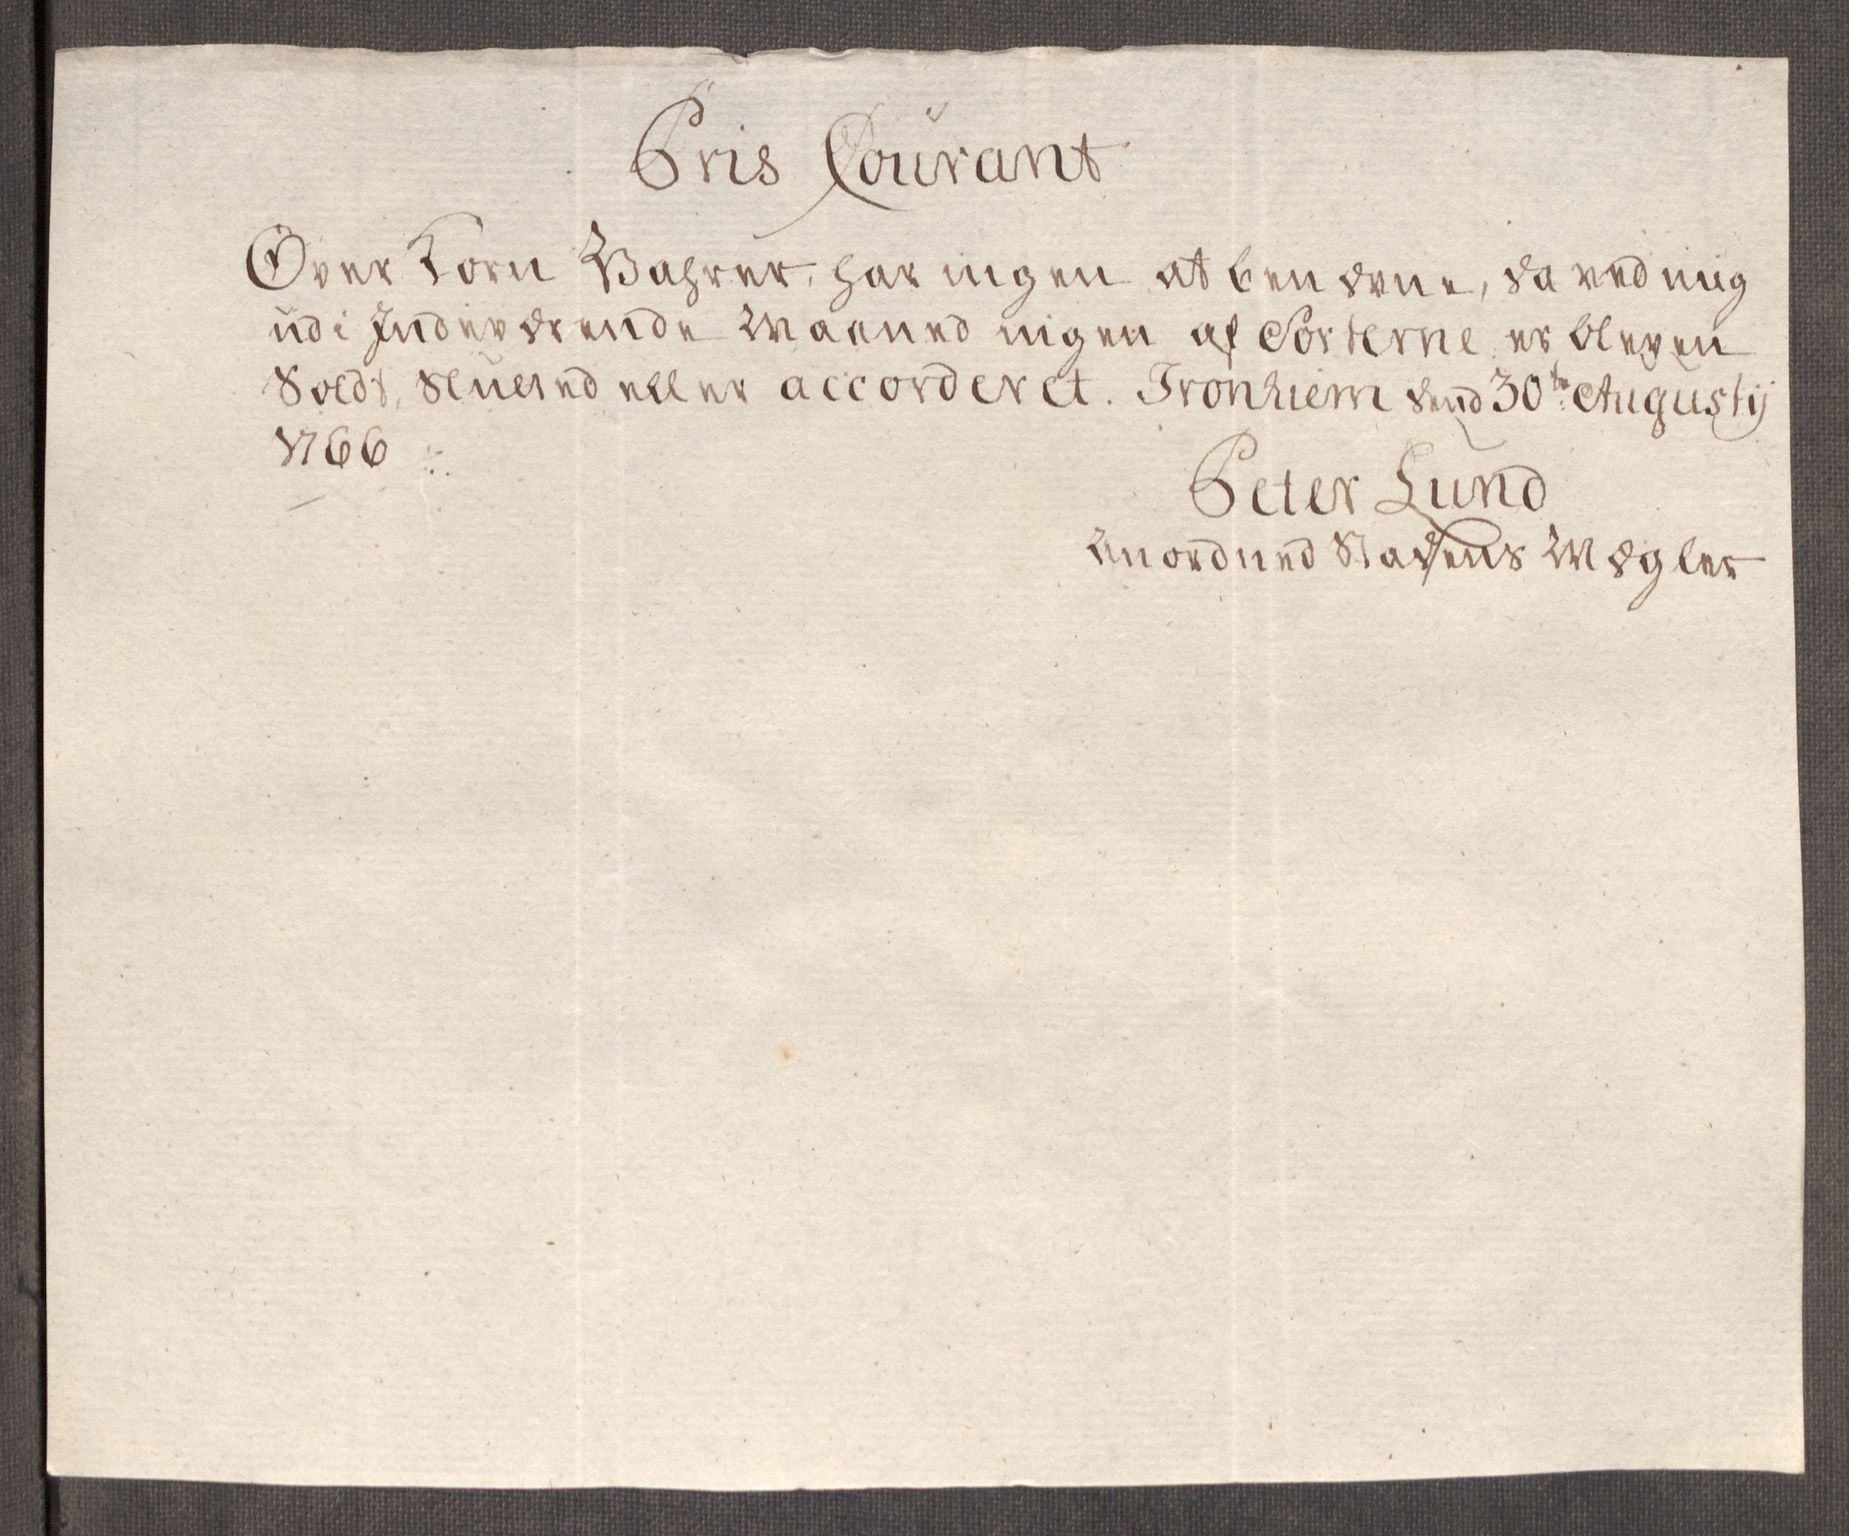 Pris Courant
Over Korn Wahrer, har ingen at benævne, da ved mig
udi Indeværende Maaned ingen af Sorterne er bleven
Soldt, Slutted eller accorderet. Tronhiem dend 30te Augustij
1766
Peter Lund
Anordned Stadens Mægler